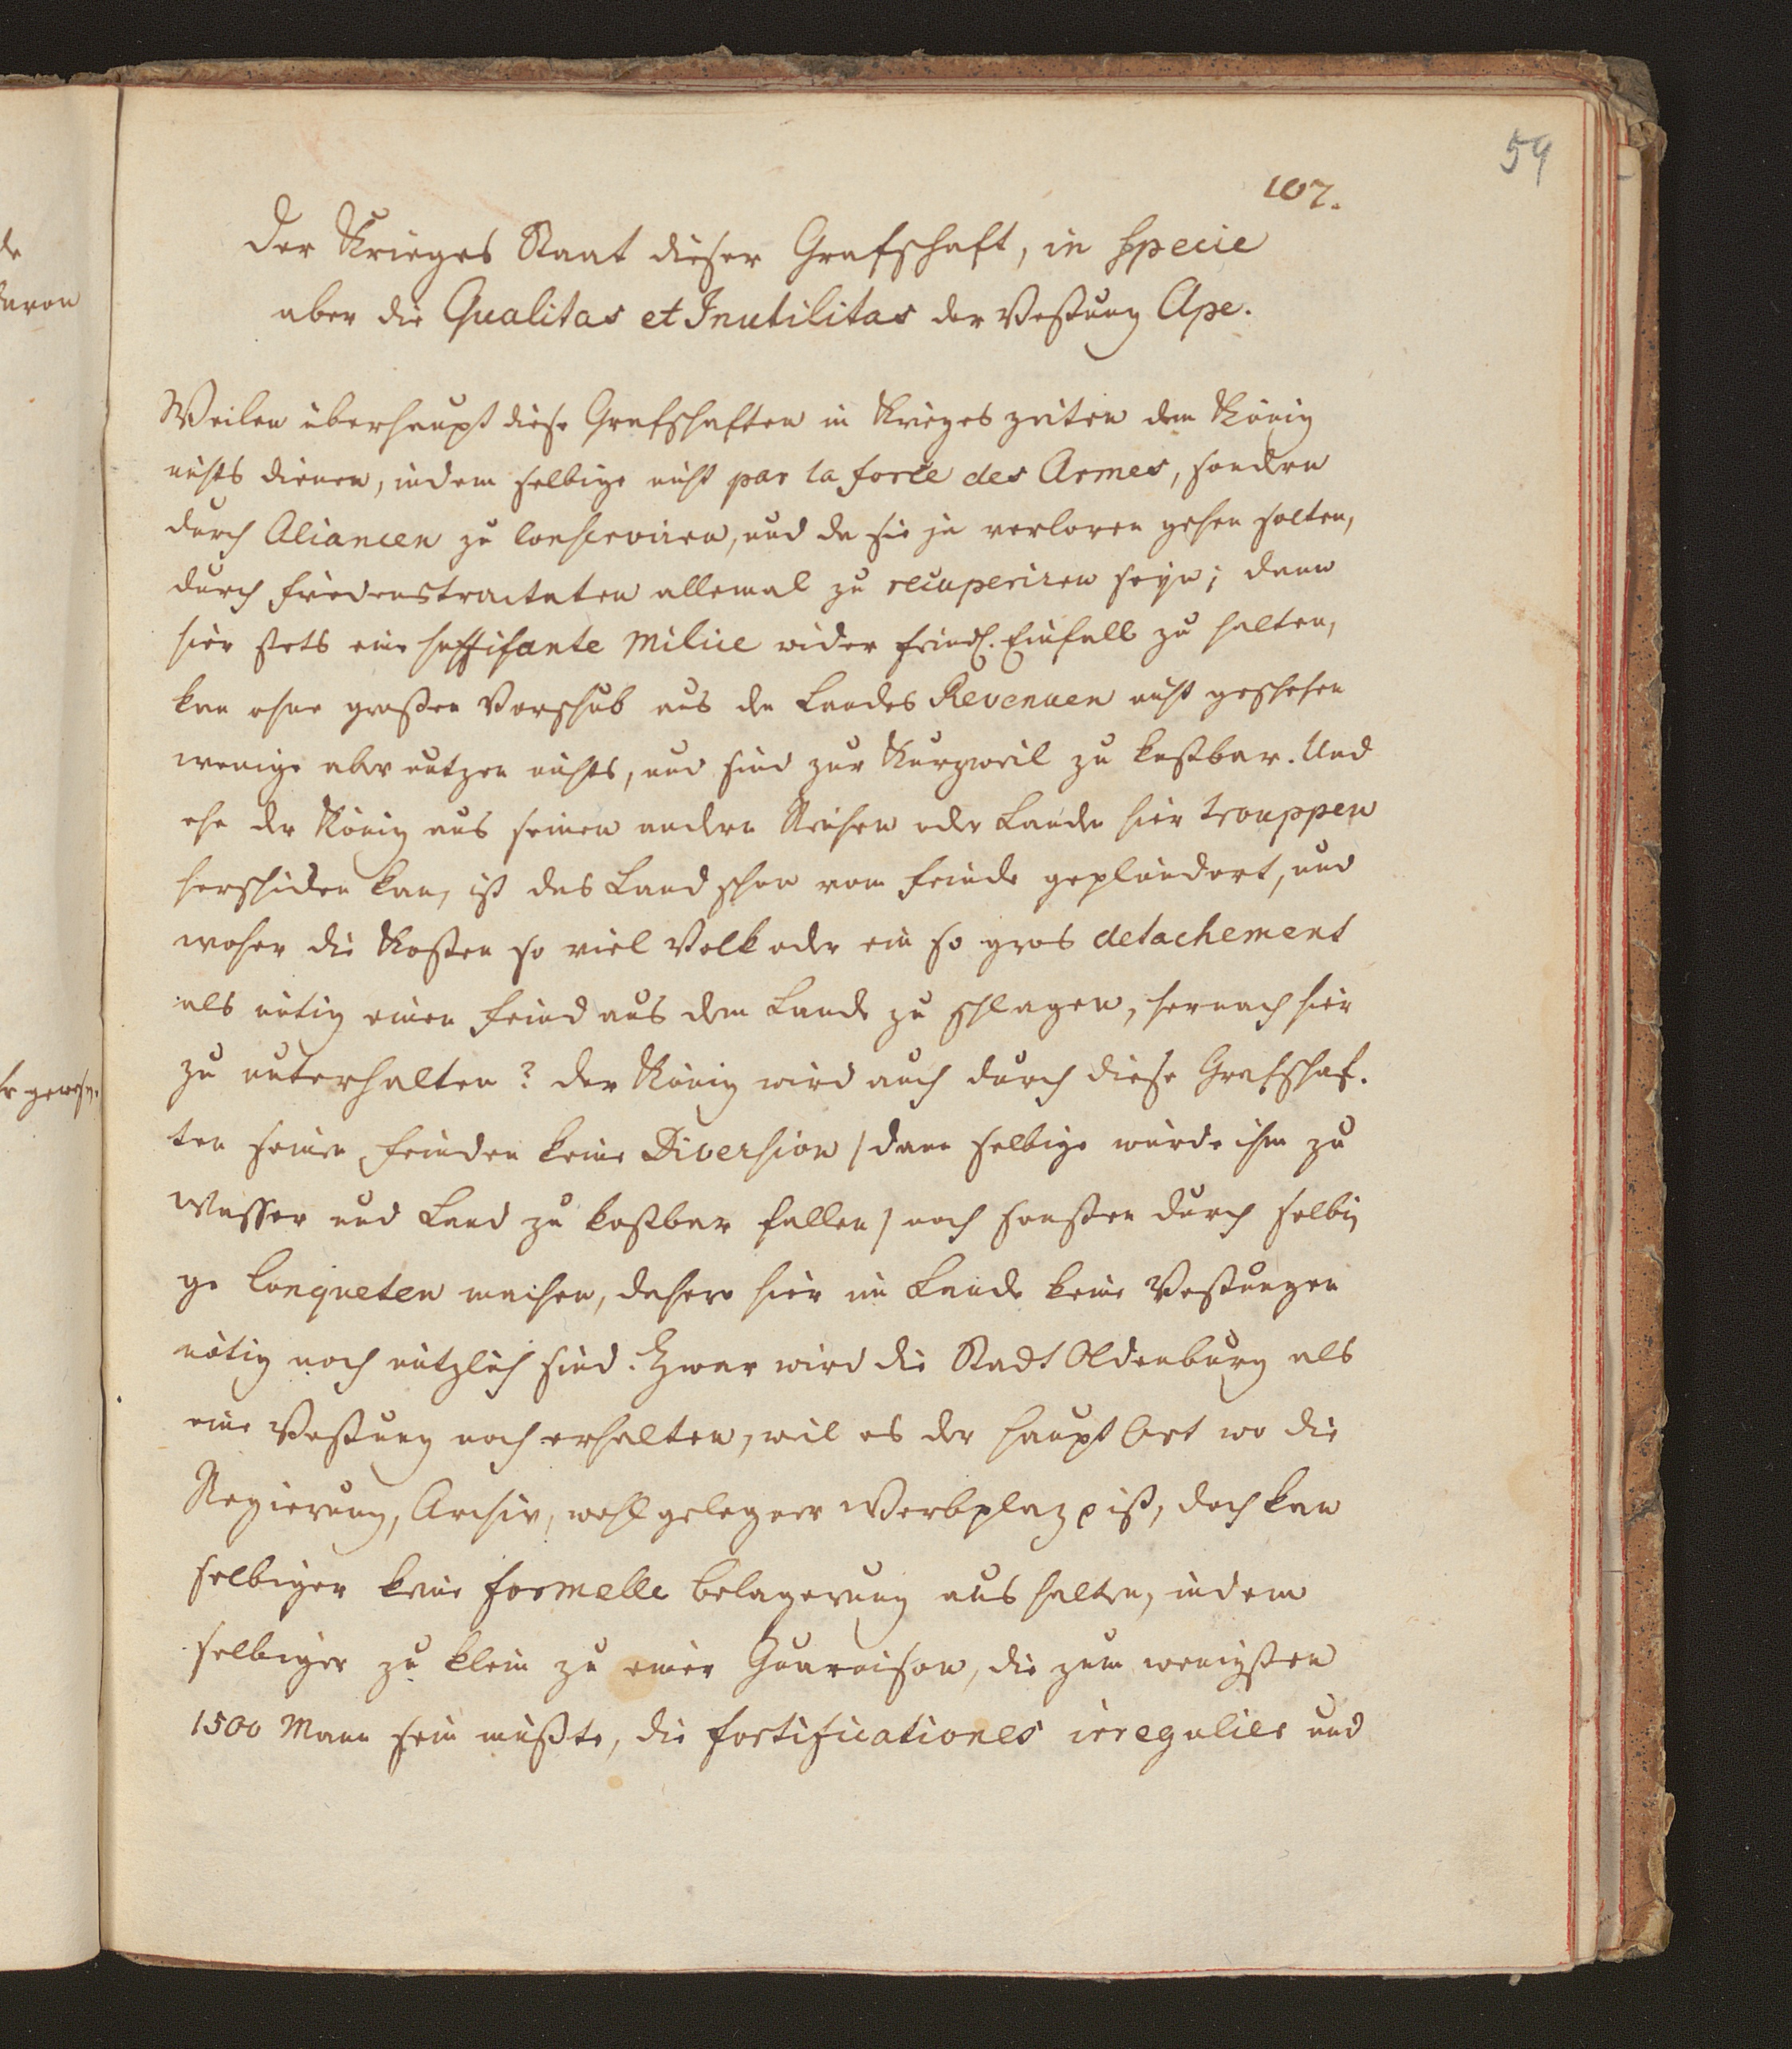 59
107.
Der Krieges Staat dieser Grafschaft, in specie
aber die Qualitas et Inutilitas der Vestung Ape.
Weilen überhaupt diese Grafschaften in Krieges zeiten dem König
nichts dienen, indem selbige nicht par la force des Armes, sondern
durch Aliancen zu conserviren, und da sie ja verloren gehen solten,
durch friedenstractaten allemal zu recuperiren seyn; dann
hier stets eine suffisante Milice wider feindl. Einfall zu halten,
kan ohne großen Vorschub aus der Landes Revenuen nicht geschehen
wenige aber nutzen nichts, und sind zur Kurzweil zu kostbar. Und
ehe der König aus seinen andern Reichen oder Lande hier trouppen
herschicken kan, ist das Land schon vom feinde geplündert, und
woher die Kosten so viel Volk oder ein so gros detachement
als nötig einen feind aus dem Lande zu schlagen, hernach hier
zu unterhalten? Der König wird auch durch diese Grafschaf-
ten seinen feinden keine Diversion /dann selbige würde ihm zu
Wasser und Land zu kostbar fallen/ noch sonsten durch selbi
ge Conqueten machen, dahero hier im Lande keine Vestungen
nötig noch nützlich sind. Zwar wird die Stadt Oldenburg als
eine Vestung noch erhalten, weil es der haupt Ort wo die
Regierung, Archiv, wohl gelegner Werbplaz ist, doch kan
selbiger keine formelle belagerung aus halten, indem
selbiger zu klein zu einer Guarnison, die zum wenigsten
1500 Mann sein müßte, die fortificationes irregulier und
de
davon
gewesen